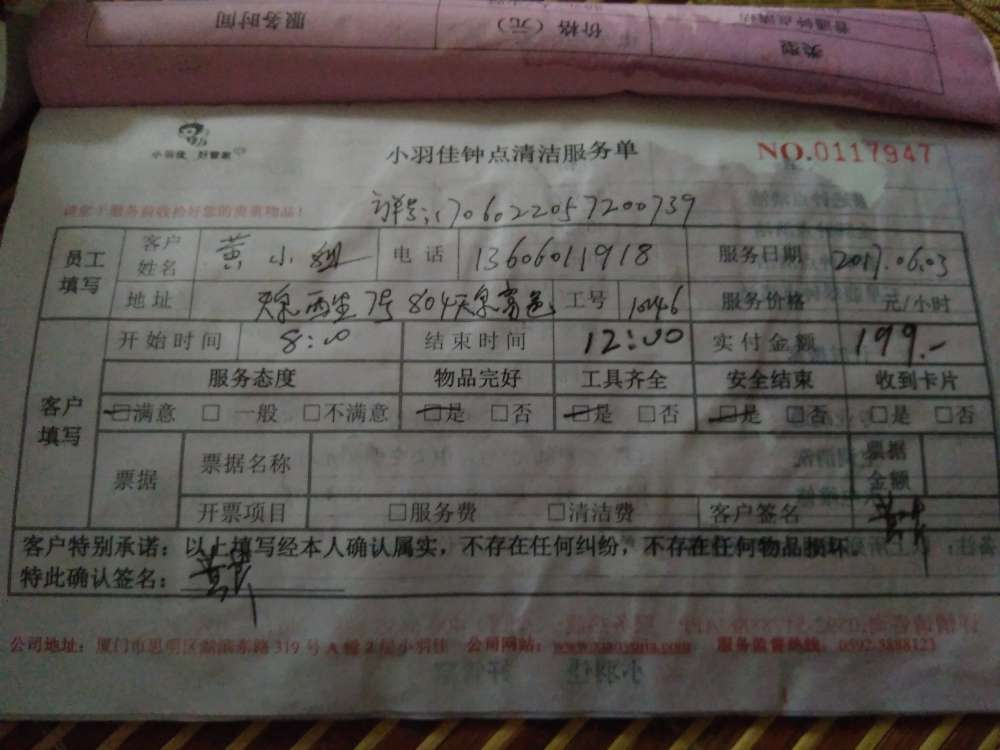 服务时间 价格（元） 类型
普通钟点清洁
小羽佳 好管家
小羽佳钟点清洁服务单
NO.0117947
单号:1706022057200739
员工填写 客户姓名 黄小姐 电话 13606011918 服务日期 2017.06.03
地址 7号804 工号 服务价格 元/小时
客户填写 开始时间 8:00 结束时间 12:00 实付金额 199.-
服务态度 物品完好 工具齐全 安全结束 收到卡片
□满意 □一般 □不满意 □是 □否 □是 □否 □是 □否 □是 □否
票据 票据名称 票据金额
开票项目 □服务费 □清洁费 客户签名
客户特别承诺：以上填写经本人确认属实，不存在任何纠纷，不存在任何物品损坏
特此确认签名：
公司地址：厦门市思明区湖滨东路319号A幢2层小羽佳 公司网站： 服务监督热线：0592-5888123